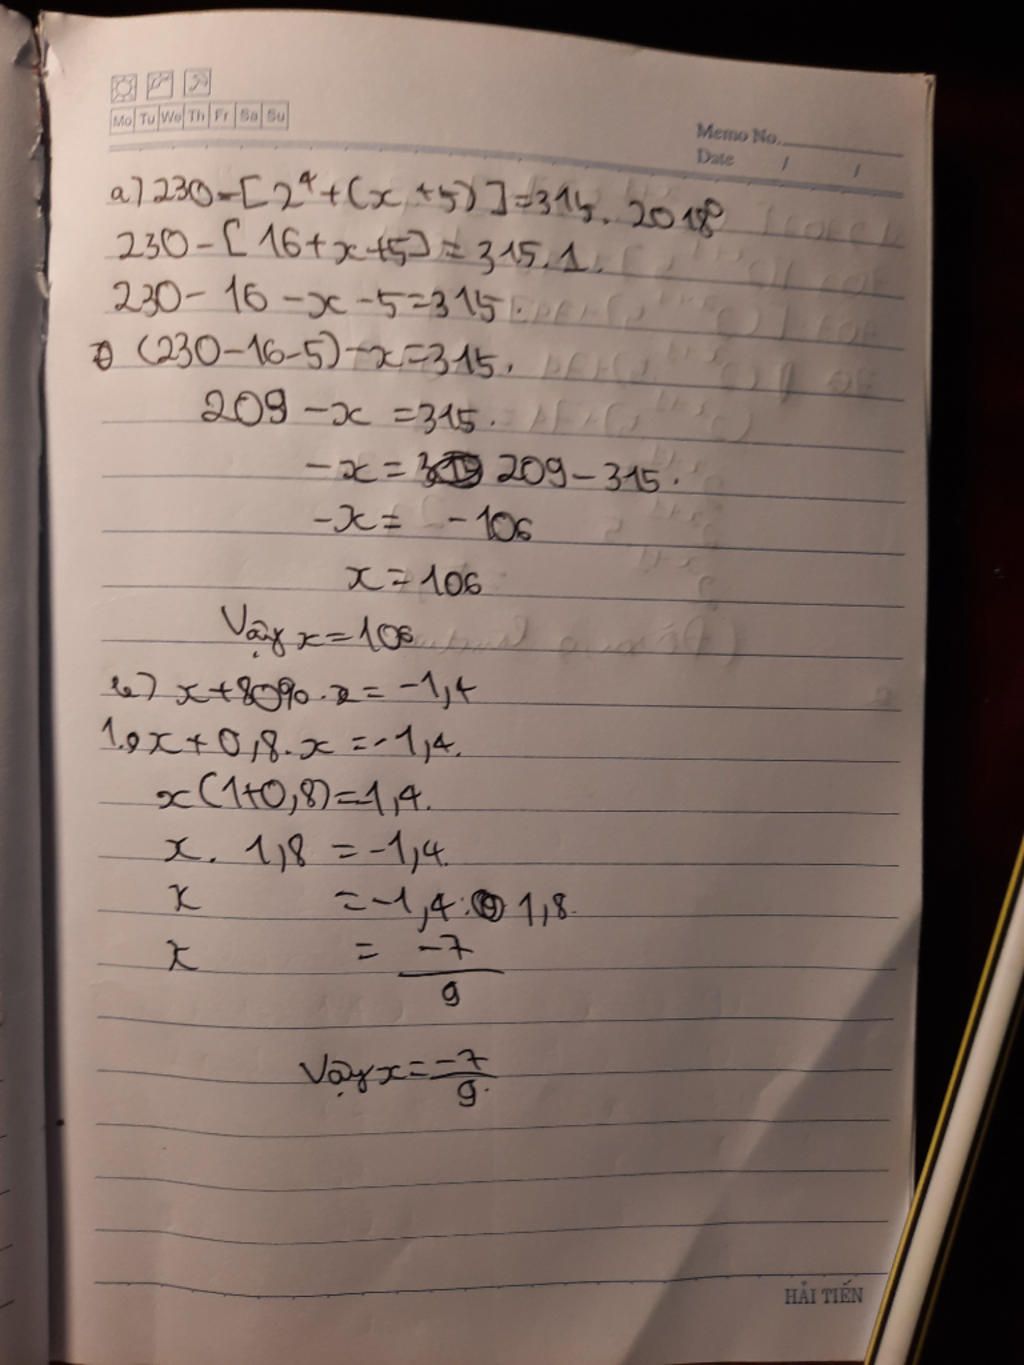 Mo Tu We Th Fr Sa Su
Memo No.
Date / /
a) 230-[2⁴+(x+5)]=315. 2018⁰
230-[16+x+5]=315.1.
230-16-x-5=315.
(230-16-5)-x=315.
209-x=315.
-x= 209-315.
-x= -106
x=106
Vậy x=106
b) x+80%.x=-1,4
1.x+0,8.x=-1,4.
x(1+0,8)=-1,4.
x. 1,8 =-1,4.
x =-1,4: 1,8.
x = -7/9
Vậy x=-7/9.
HẢI TIẾN